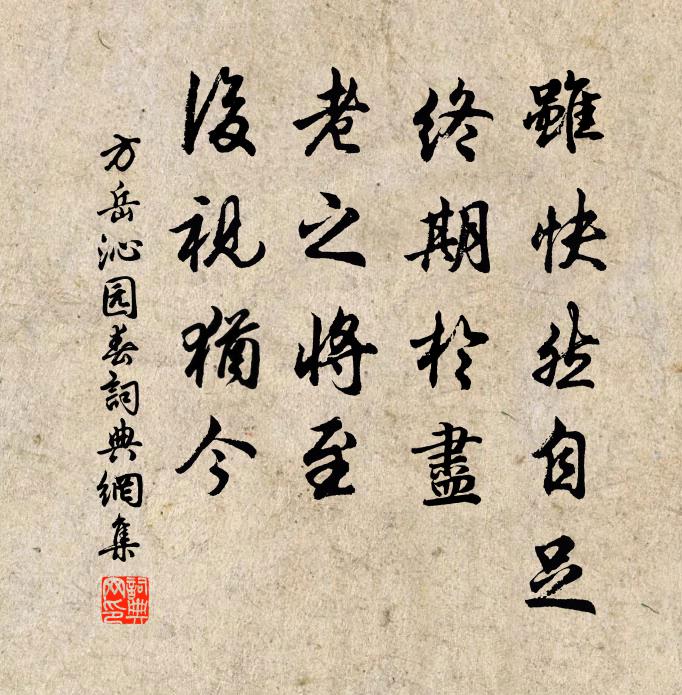 雖快然自足
終期於盡
老之將至
後視猶今
方岳沁园春詞典網集
詞典网印